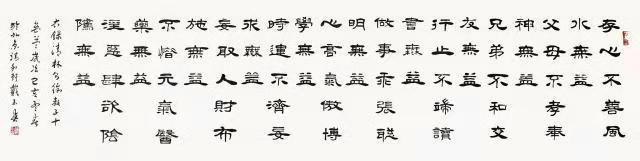 存心不善風
水無益
父母不孝奉
神無益
兄弟不和交
友無益
行止不端讀
書無益
做事乖張聰
明無益
心高氣傲博
學無益
時運不濟妄
求無益
妄取人財布
施無益
不惜元氣醫
藥無益
淫惡肆欲陰
隲無益
右錄清林公
歲次己亥